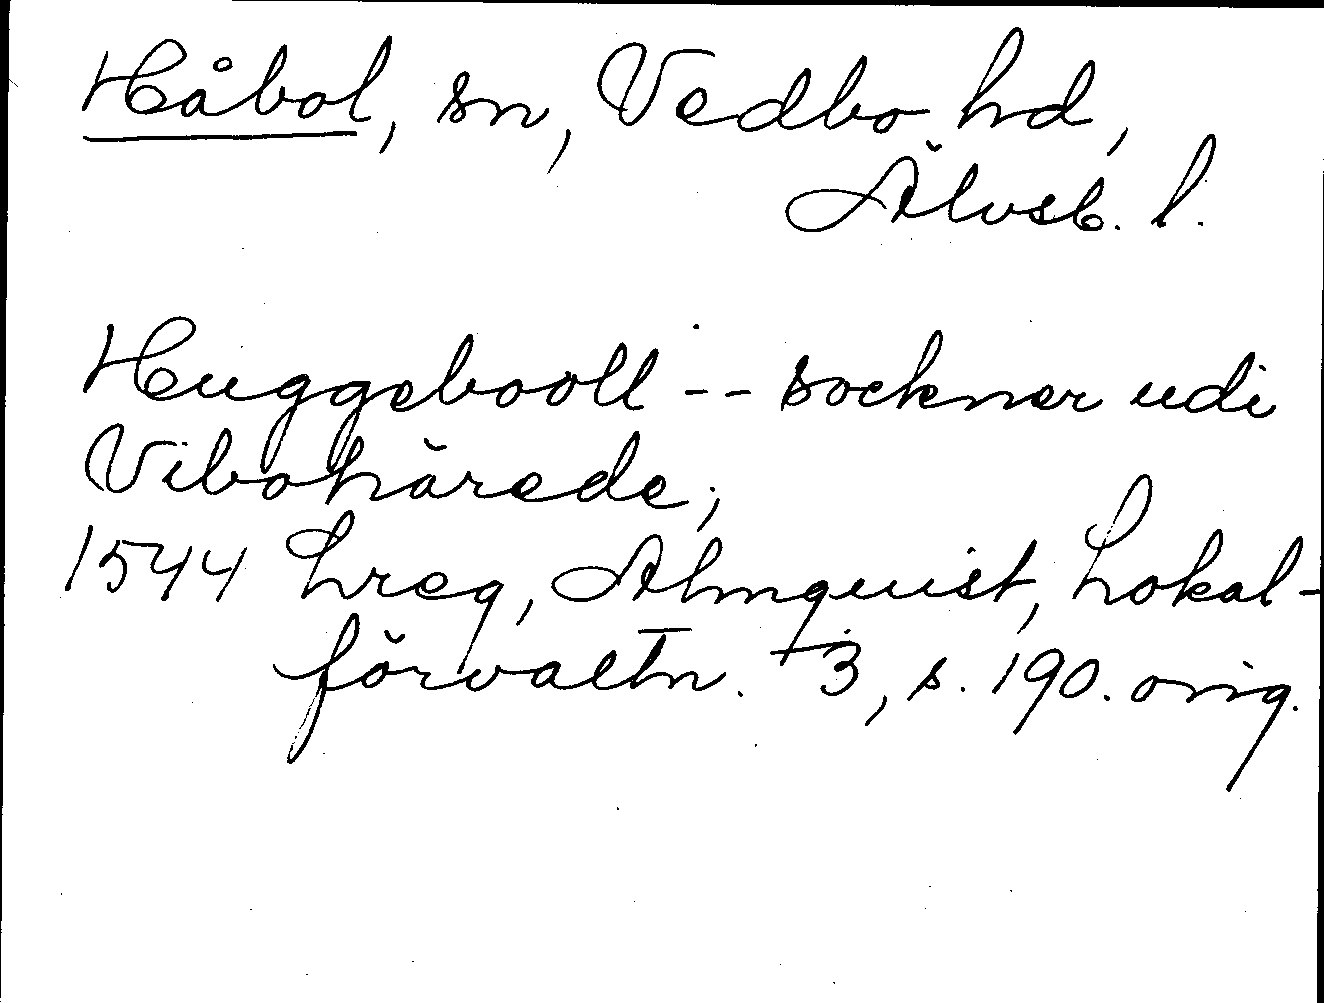 Håbol, sn, Vedbo hd,
Älvsb. l.
Huggebooll -- sockner udi
Vibohärede;
1544 Lreg, Almquist, Lokal-
förvaltn. 3, s. 190. orig.